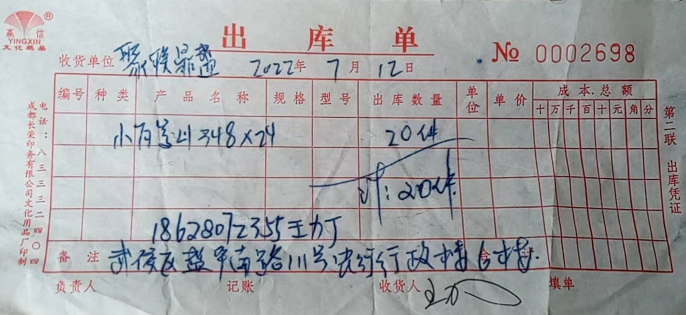 赢信
YINGXIN
文化纸品
出库单
No 0002698
收货单位 2022年7月12日
编号 种类 产品名称 规格 型号 出库数量 单位 单价 成本总额
十万千百十元角分
348×24 20件
计:20件
18628072355王力丁
备注 武侯区 南路111号 行政
负责人 记账 收货人 填单
第二联 出库凭证
成都长荣印务有限公司文化用品厂印制
电话:八三三三二四〇四